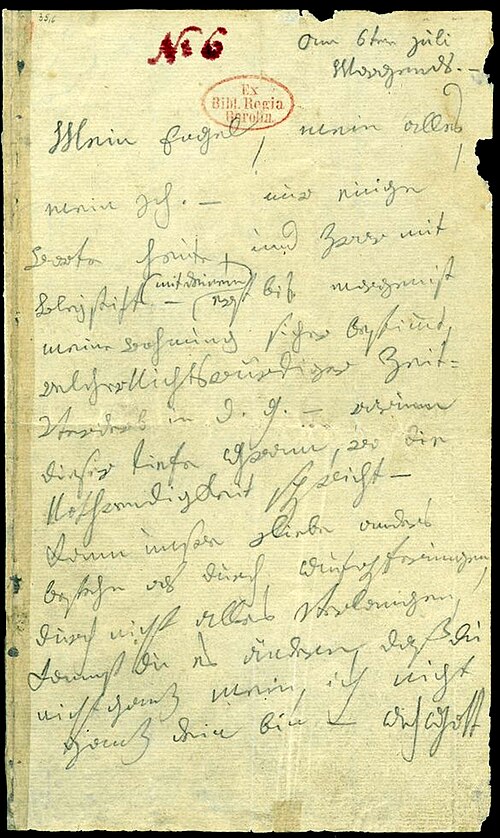 № 6
am 6ten Juli
Morgends. –
Ex
Bibl. Regia
Berolin.
Mein Engel, mein alles,
mein Ich. – nur einige
Worte heute, und zwar mit
Bleystift – (mit deinem)
erst bis morgen ist
meine Wohnung sicher bestimmt,
welcher Nichtswürdiger Zeit=
Verderb in d. g. – warum
dieser tiefe Gram, wo die
Nothwendigkeit spricht –
Kann unsre Liebe anders
bestehn als durch Aufopferungen,
durch nicht alles verlangen,
kannst du es ändern, daß du
nicht ganz mein, ich nicht
ganz dein bin – Ach Gott